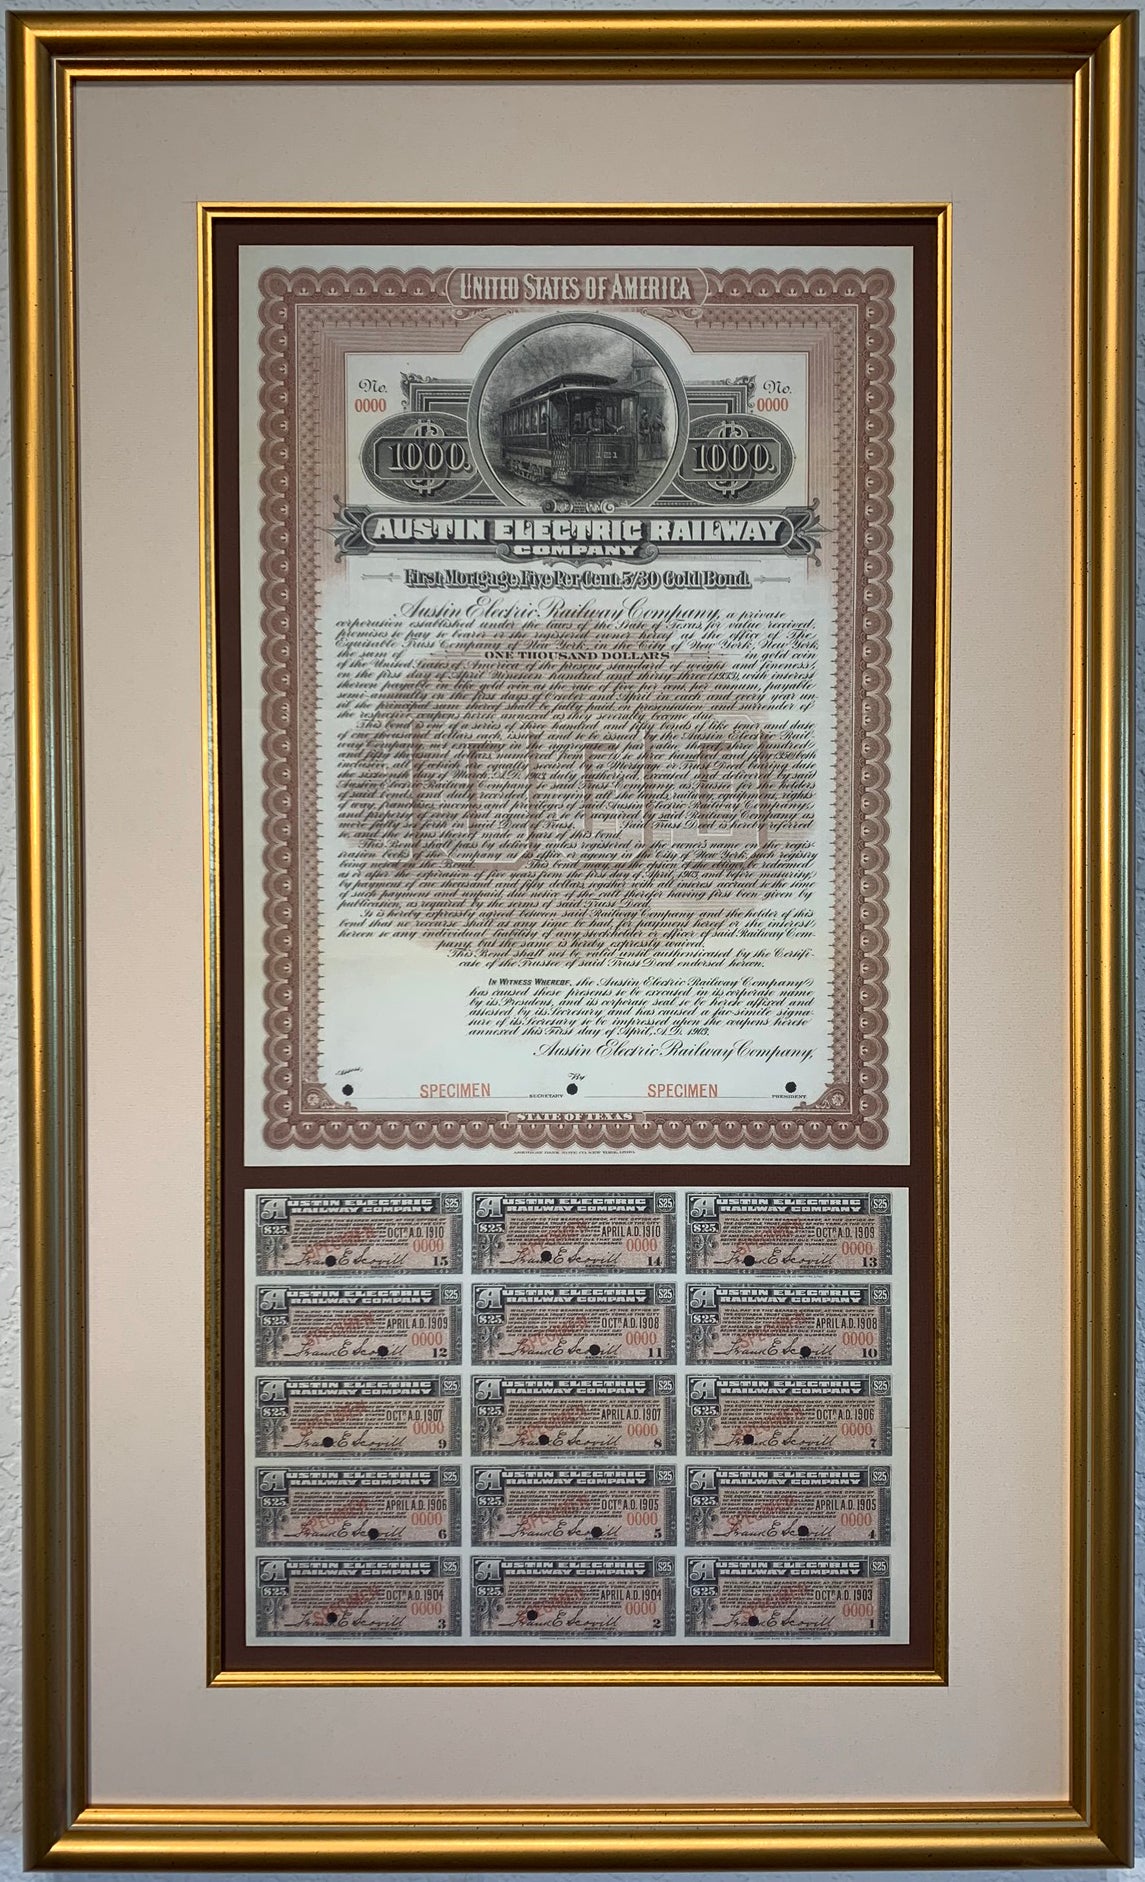 UNITED STATES OF AMERICA
No. 0000
No. 0000
1000.
121
1000.
AUSTIN ELECTRIC RAILWAY
COMPANY
First Mortgage, Five Per Cent. 5/30 Gold Bond.
Austin Electric Railway Company, a private
corporation established under the laws of the State of Texas for value received,
promises to pay to bearer or the registered owner hereof at the office of The
Equitable Trust Company of New York, in the City of New York, New York,
the sum of ONE THOUSAND DOLLARS in gold coin
of the United States of America of the present standard of weight and fineness,
on the first day of April Nineteen hundred and thirty three (1933), with interest
thereon payable in like gold coin at the rate of five per cent. per annum, payable
semi-annually on the first days of October and April in each and every year un-
til the principal sum thereof shall be fully paid, on presentation and surrender of
the respective coupons hereto annexed as they severally become due.
This bond is one of a series of three hundred and fifty bonds of like tenor and date
of one thousand dollars each, issued and to be issued by the Austin Electric Rail-
way Company, not exceeding in the aggregate at par value three hundred
and fifty thousand dollars, numbered from one to three hundred and fifty (350) both
inclusive, all of which are equally secured by a Mortgage or Trust Deed bearing date
the sixteenth day of March, A.D. 1903, duly authorized, executed and delivered by said
Austin Electric Railway Company to said Trust Company, as Trustee for the holders
of said bonds, and duly recorded, conveying all the lands, railway, equipment, rights
of way, franchises, income and privileges of said Austin Electric Railway Company,
and property of every kind acquired or to be acquired by said Railway Company as
more fully set forth in said Deed of Trust. Said Trust Deed is hereby referred
to, and the terms thereof made a part of this bond.
This Bond shall pass by delivery unless registered in the owner's name on the regis-
tration books of the Company at its office or agency in the City of New York, such registry
being noted on the Bond. This bond may at the option of the obligor be redeemed
at or after the expiration of five years from the first day of April, 1903, and before maturity,
by payment of one thousand and fifty dollars, together with all interest accrued to the time
of such payment and unpaid, due notice of the call therefor having first been given by
publication, as required by the terms of said Trust Deed.
It is hereby expressly agreed between said Railway Company and the holder of this
bond that no recourse shall at any time be had for payment hereof or the interest
hereon to any individual liability of any stockholder or officer of said Railway Com-
pany, but the same is hereby expressly waived.
This Bond shall not be valid until authenticated by the Certifi-
cate of the Trustee of said Trust Deed endorsed hereon.
IN WITNESS WHEREOF, the Austin Electric Railway Company
has caused these presents to be executed in its corporate name
by its President, and its corporate seal to be hereto affixed and
attested by its Secretary and has caused a fac-simile signa-
ture of its Secretary to be impressed upon the coupons hereto
annexed this First day of April, A.D. 1903.
Austin Electric Railway Company,
By
SPECIMEN SECRETARY SPECIMEN PRESIDENT
STATE OF TEXAS
AMERICAN BANK NOTE CO. NEW YORK.
AUSTIN ELECTRIC RAILWAY COMPANY $25 $25. OCT. A.D. 1910 SPECIMEN 0000 Frank E. Scovill SECRETARY 15
AUSTIN ELECTRIC RAILWAY COMPANY $25 $25. APRIL A.D. 1910 SPECIMEN 0000 Frank E. Scovill SECRETARY 14
AUSTIN ELECTRIC RAILWAY COMPANY $25 $25. OCT. A.D. 1909 SPECIMEN 0000 Frank E. Scovill SECRETARY 13
AUSTIN ELECTRIC RAILWAY COMPANY $25 $25. APRIL A.D. 1909 SPECIMEN 0000 Frank E. Scovill SECRETARY 12
AUSTIN ELECTRIC RAILWAY COMPANY $25 $25. OCT. A.D. 1908 SPECIMEN 0000 Frank E. Scovill SECRETARY 11
AUSTIN ELECTRIC RAILWAY COMPANY $25 $25. APRIL A.D. 1908 SPECIMEN 0000 Frank E. Scovill SECRETARY 10
AUSTIN ELECTRIC RAILWAY COMPANY $25 $25. OCT. A.D. 1907 SPECIMEN 0000 Frank E. Scovill SECRETARY 9
AUSTIN ELECTRIC RAILWAY COMPANY $25 $25. APRIL A.D. 1907 SPECIMEN 0000 Frank E. Scovill SECRETARY 8
AUSTIN ELECTRIC RAILWAY COMPANY $25 $25. OCT. A.D. 1906 SPECIMEN 0000 Frank E. Scovill SECRETARY 7
AUSTIN ELECTRIC RAILWAY COMPANY $25 $25. APRIL A.D. 1906 SPECIMEN 0000 Frank E. Scovill SECRETARY 6
AUSTIN ELECTRIC RAILWAY COMPANY $25 $25. OCT. A.D. 1905 SPECIMEN 0000 Frank E. Scovill SECRETARY 5
AUSTIN ELECTRIC RAILWAY COMPANY $25 $25. APRIL A.D. 1905 SPECIMEN 0000 Frank E. Scovill SECRETARY 4
AUSTIN ELECTRIC RAILWAY COMPANY $25 $25. OCT. A.D. 1904 SPECIMEN 0000 Frank E. Scovill SECRETARY 3
AUSTIN ELECTRIC RAILWAY COMPANY $25 $25. APRIL A.D. 1904 SPECIMEN 0000 Frank E. Scovill SECRETARY 2
AUSTIN ELECTRIC RAILWAY COMPANY $25 $25. OCT. A.D. 1903 SPECIMEN 0000 Frank E. Scovill SECRETARY 1